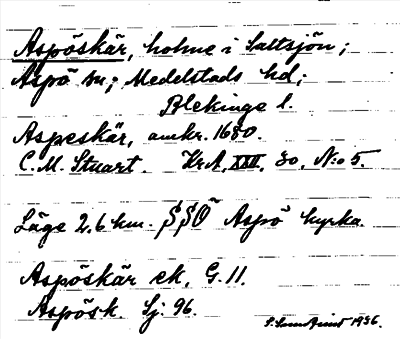 Aspöskär, holme i Saltsjön;
Aspö sn; Medelstads hd;
Blekinge l.
Aspeskär, omkr. 1680.
C. M. Stuart. KrA, XXII, 30, N:o 5.
Läge 2,6 km. SSÖ Aspö kyrka.
Aspöskär ek, G. 11.
Aspösk. Sj: 96.
1936.